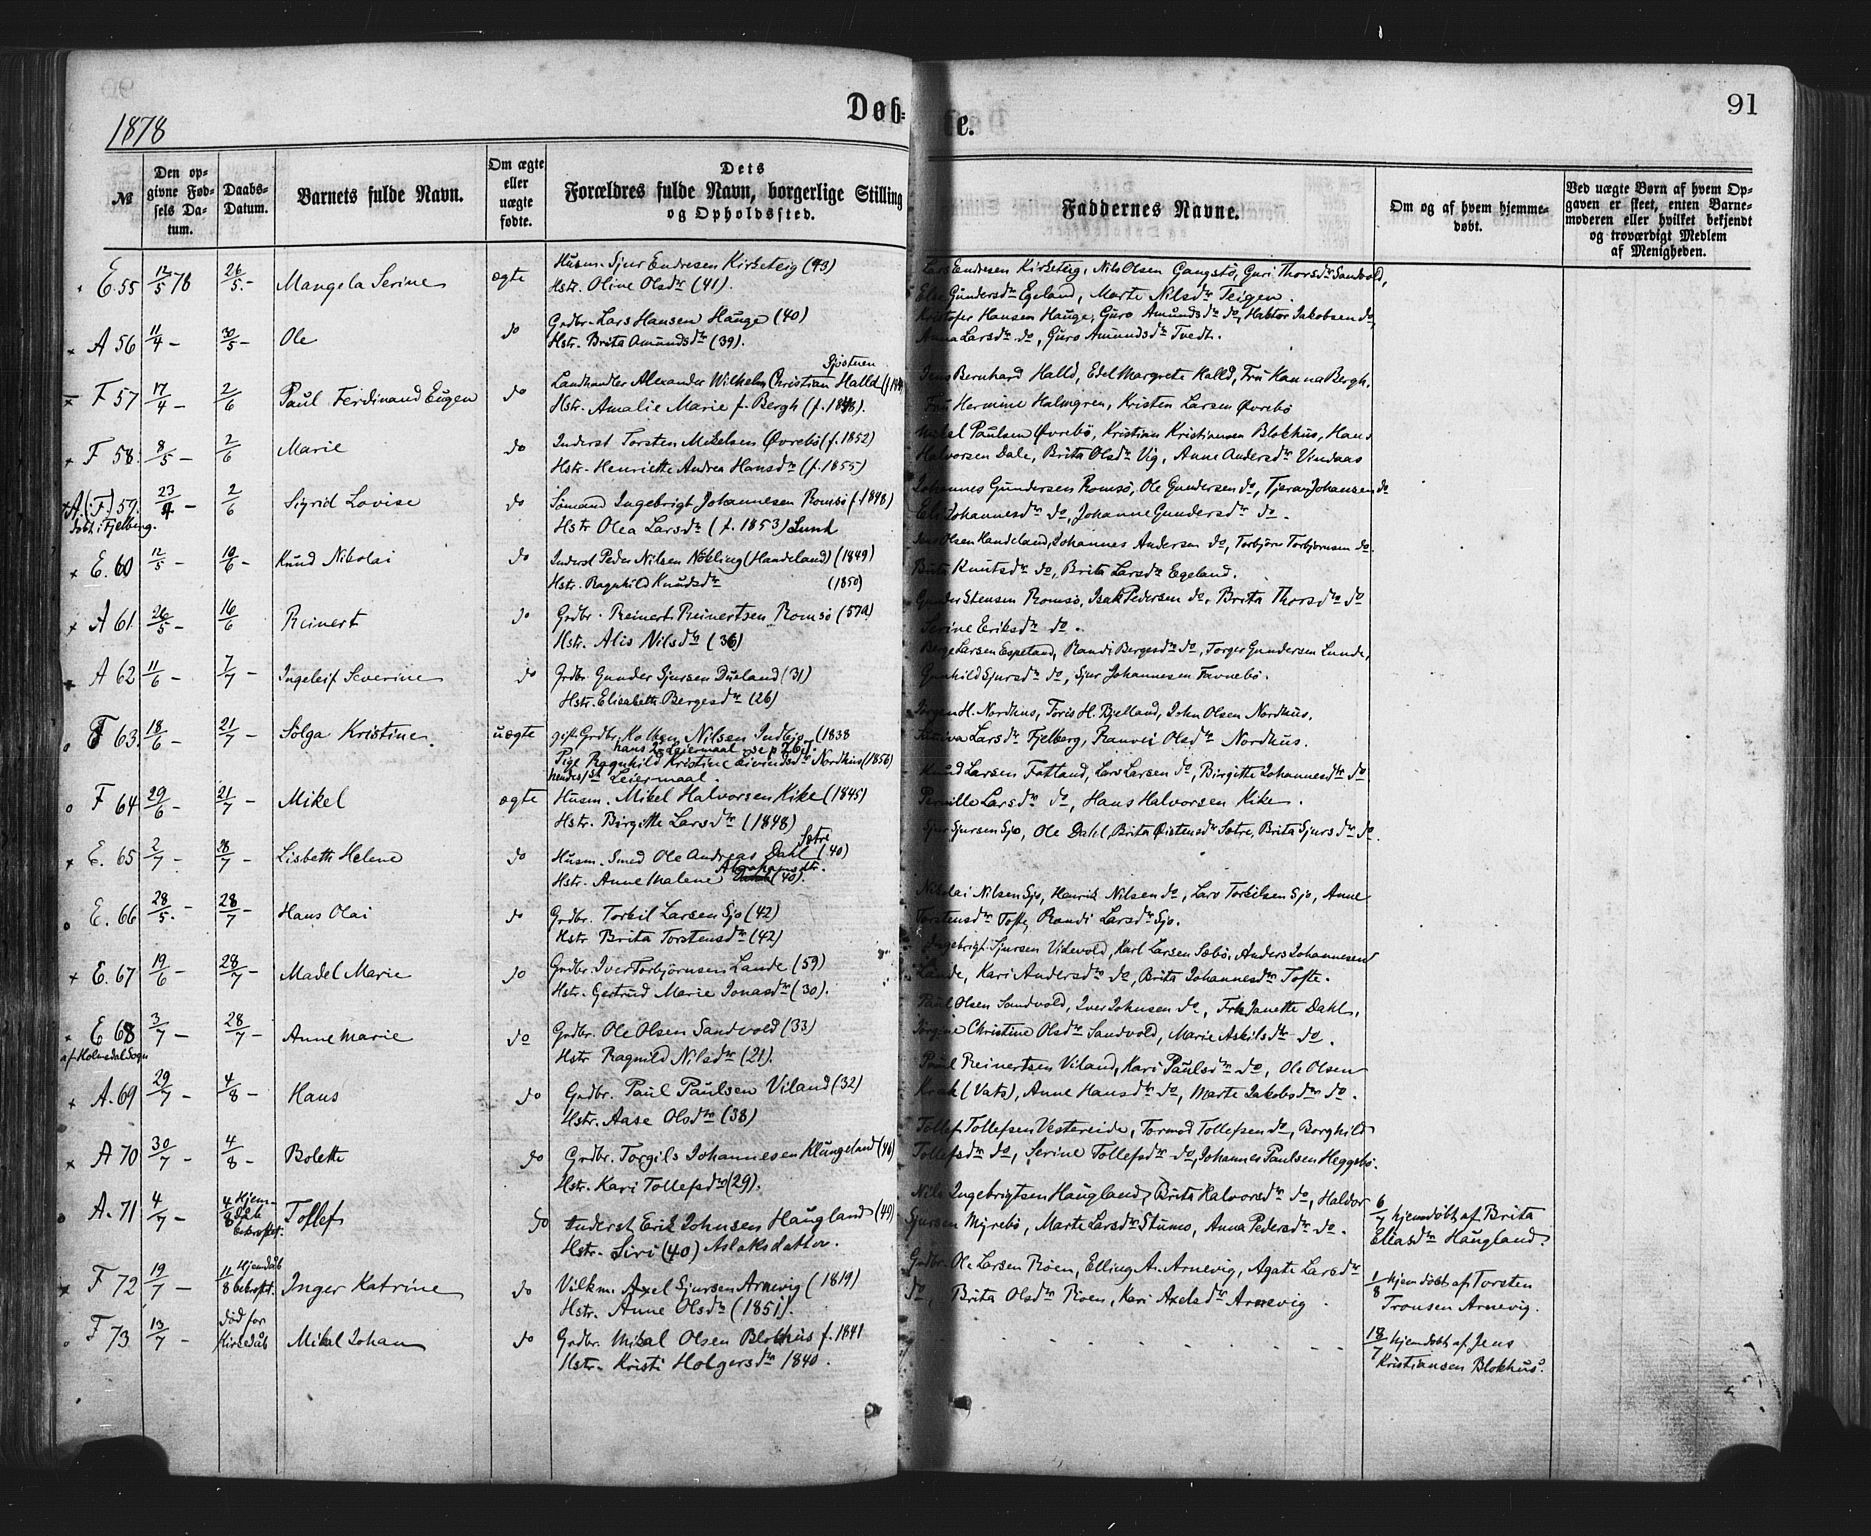 91
1878
Døb-
te.
№
Den opgivne Fødsels Datum.
Daabs-Datum.
Barnets fulde Navn.
Om ægte eller uægte fødte.
Dets Forældres fulde Navn, borgerlige Stilling og Opholdssted.
Faddernes Navne.
Om og af hvem hjemmedøbt.
Ved uægte Børn af hvem Opgaven er skeet, enten Barnemoderen eller hvilket bekjendt og troværdigt Medlem af Menigheden.
E. 55 12/5 78 26/5 - Mangela Serine ægte Husm. Sjur Endresen Kirketeig (43)
Hstr. Oline Olsdtr (41).
Lars Endresen Kirketeig, Nils Olsen Gangstø, Guri Thorsdtr Sandvold,
Else Gundersdtr Egeland, Marte Nilsdtr Teigen.
A 56 11/4 - 30/5 - Ole do Grdbr. Lars Hansen Hauge (40)
Hstr. Brita Amundsdtr (39).
Kristofer Hansen Hauge, Guro Amundsdtr do, Haktor Jakobsen do,
Anna Larsdtr do, Guro Amundsdtr Tvedt.
F 57 17/4 - 2/6 Paul Ferdinand Eugen do Landhandler Alexander Wilhelm Christian Halld
Hstr. Amalie Marie f. Bergh
Jens Bernhard Halld, Edel Margrete Halld, Fru Hanna Bergh,
Fru Hermine Halmgren, Kristen Larsen Øvrebø
F 58 8/5 - 2/6 Marie do Inderst Torsten Mikelsen Øvrebø (f. 1852)
Hstr. Henriette Andrea Hansdtr (f. 1855)
Mikal Paulsen Øvrebø, Kristian Kristiansen Blokhus, Hans
Halvorsen Dale, Brita Olsdtr Vig, Anne Andersdtr Vindaas
A. (F.) 59. 23/4 - 2/6 Sigrid Lovise do Sømand Ingebrigt Johannesen Romsø (f. 1848)
døbt i Fjelberg. Hstr Olea Larsdtr (f. 1853) Lund
Johannes Gundersen Romsø, Ole Gundersen do, Tjeran Johansen do
Eli Johannesdtr do, Johanne Gundersdtr do -
E. 60 12/5 - 10/6 - Knud Nikolai do Inderst Peder Nilsen Nökling (Handeland) (1849)
Hstr. Ragnhild Knudsdtr (1850)
Jens Olsen Handeland, Johannes Andersen do, Torbjörn Torbjörnsen do
Brita Knutsdtr do, Brita Larsdtr Egeland.
A 61 26/5 - 16/6 Reinert do Grdbr. Reinert Reinertsen Romsø
Hstr. Alis Nilsdtr (36)
Gunder Stensen Romsø, Isak Pedersen do, Brita Thorsdtr do
Serine Eriksdtr do.
A 62 11/6 - 7/7 - Ingeleif Severine do Grdbr. Gunder Sjursen Dueland (31)
Hstr. Elisabeth Bergesdtr (26)
Berge Larsen Espeland, Randi Bergesdtr do, Torger Gundersen Lunde,
Gunhild Sjursdtr do, Sjur Johannesen Favnebø.
F 63. 18/6 - 21/7 - Sölga Kristine. uægte gift Grdbr. Nilsen Indbjo (1838
hans 2. Leiermaal se p 76.
Pige Ragnhild Kristine Eivindsdtr Nordhus (1856)
hendes 1ste Leiermaal.
Jörgen H. Nordhus, Joris H. Bjelland, John Olsen Nordhus.
Larsdtr Fjelberg, Ranvei Olsdtr Nordhus.
F 64 29/6 - 21/7 - Mikel ægte Husm. Mikel Halvorsen Kike (1845)
Hstr. Birgitte Larsdtr (1848)
Knud Larsen Fatland, Lars Larsen do, Birgitte Johannesdtr do
Pernille Larsdtr do, Hans Halvorsen Kike.
E. 65 2/7 - 28/7 - Lisbeth Helene do Husm. Smed Ole Andreas Dahl Sætre (40)
Hstr. Anne Malene Abrahamsdtr. (40).
Sjur Sjursen Sjo, Ole Dahl, Brita Østensdtr Sætre, Brita Sjursdtr do.
E. 66 28/5. - 28/7 - Hans Olai do Grdbr. Torkil Larsen Sjo (42)
Hstr Brita Torstensdtr (42)
Nikolai Nilsen Sjo, Henrik Nilsen do, Lars Torkilsen Sjo, Anne
Torstensdtr Tofte, Randi Larsdtr Sjo.
E. 67 19/6 - 28/7 - Madel Marie do Grdbr. Iver Torbjörnsen Lande (59)
Hstr. Gertrud Marie Jonasdtr (30).
Ingebrigt Sjursen Videvold, Karl Larsen Sæbö, Anders Johannesen
Lande, Kari Andersdtr do, Brita Johannesdtr Tofte.
E 68 3/7 - 28/7 - Anne Marie do Grdbr. Ole Olsen Sandvold (33)
af Holmedal Sogn Hstr Ragnild Nilsdtr (21).
Paul Olsen Sandvold, Iver Johnsen do, Frk Janette Dahl,
Jörgine Christine Olsdtr Sandvold, Marie Askilsdtr do.
A. 69 29/7 - 4/8 - Hans do Grdbr. Paul Paulsen Viland (32)
Hstr. Aase Olsdtr (38)
Paul Reinertsen Viland, Kari Paulsdtr do, Ole Olsen
Krak (Vats), Anne Hansdtr do, Marte Jakobsdtr do.
A 70 30/7 - 4/8 - Bolette do Grdbr. Torgils Johannesen Klungeland (46)
Hstr. Kari Tollefsdtr (29).
Tollef Tollefsen Vestereide, Tormod Tollefsen do, Borghild
Tollefsdtr do, Serine Tollefsdtr do, Johannes Paulsen Heggebö.
A. 71 4/7 - 4/8 Hjemdåb bekræftet. Tollef do Inderst Erik Johnsen Haugland (49)
Hstr. Siri (40) Aslaksdatter.
Nils Ingebrigtsen Haugland, Brita Halvorsdtr do, Haldor
Sjursen Myrebø, Marte Larsdtr Stumo, Anna Pedersdtr do.
6/7 hjemdöbt af Brita
Eliasdtr Haugland.
F 72 19/7 - 11/8 Hjemdåb bekræft. Inger Katrine do Vilkm. Axel Sjursen Arnevig (1819)
Hstr. Anne Olsdtr (1851).
Grdbr. Ole Larsen Röen, Elling A. Arnevig, Agate Larsdtr
do, Brita Olsdtr Röen, Kari Axelsdtr Arnevig.
1/8 hjemdöbt af Torsten
Tronsen Arnevig.
F 73 13/7 - död för Kirkedåb Mikal Johan do Grdbr. Mikal Olsen Blokhus f. 1841
Hstr. Kristi Holgersdtr 1840.
18/7 hjemdöbt af Jens
Kristiansen Blokhus.